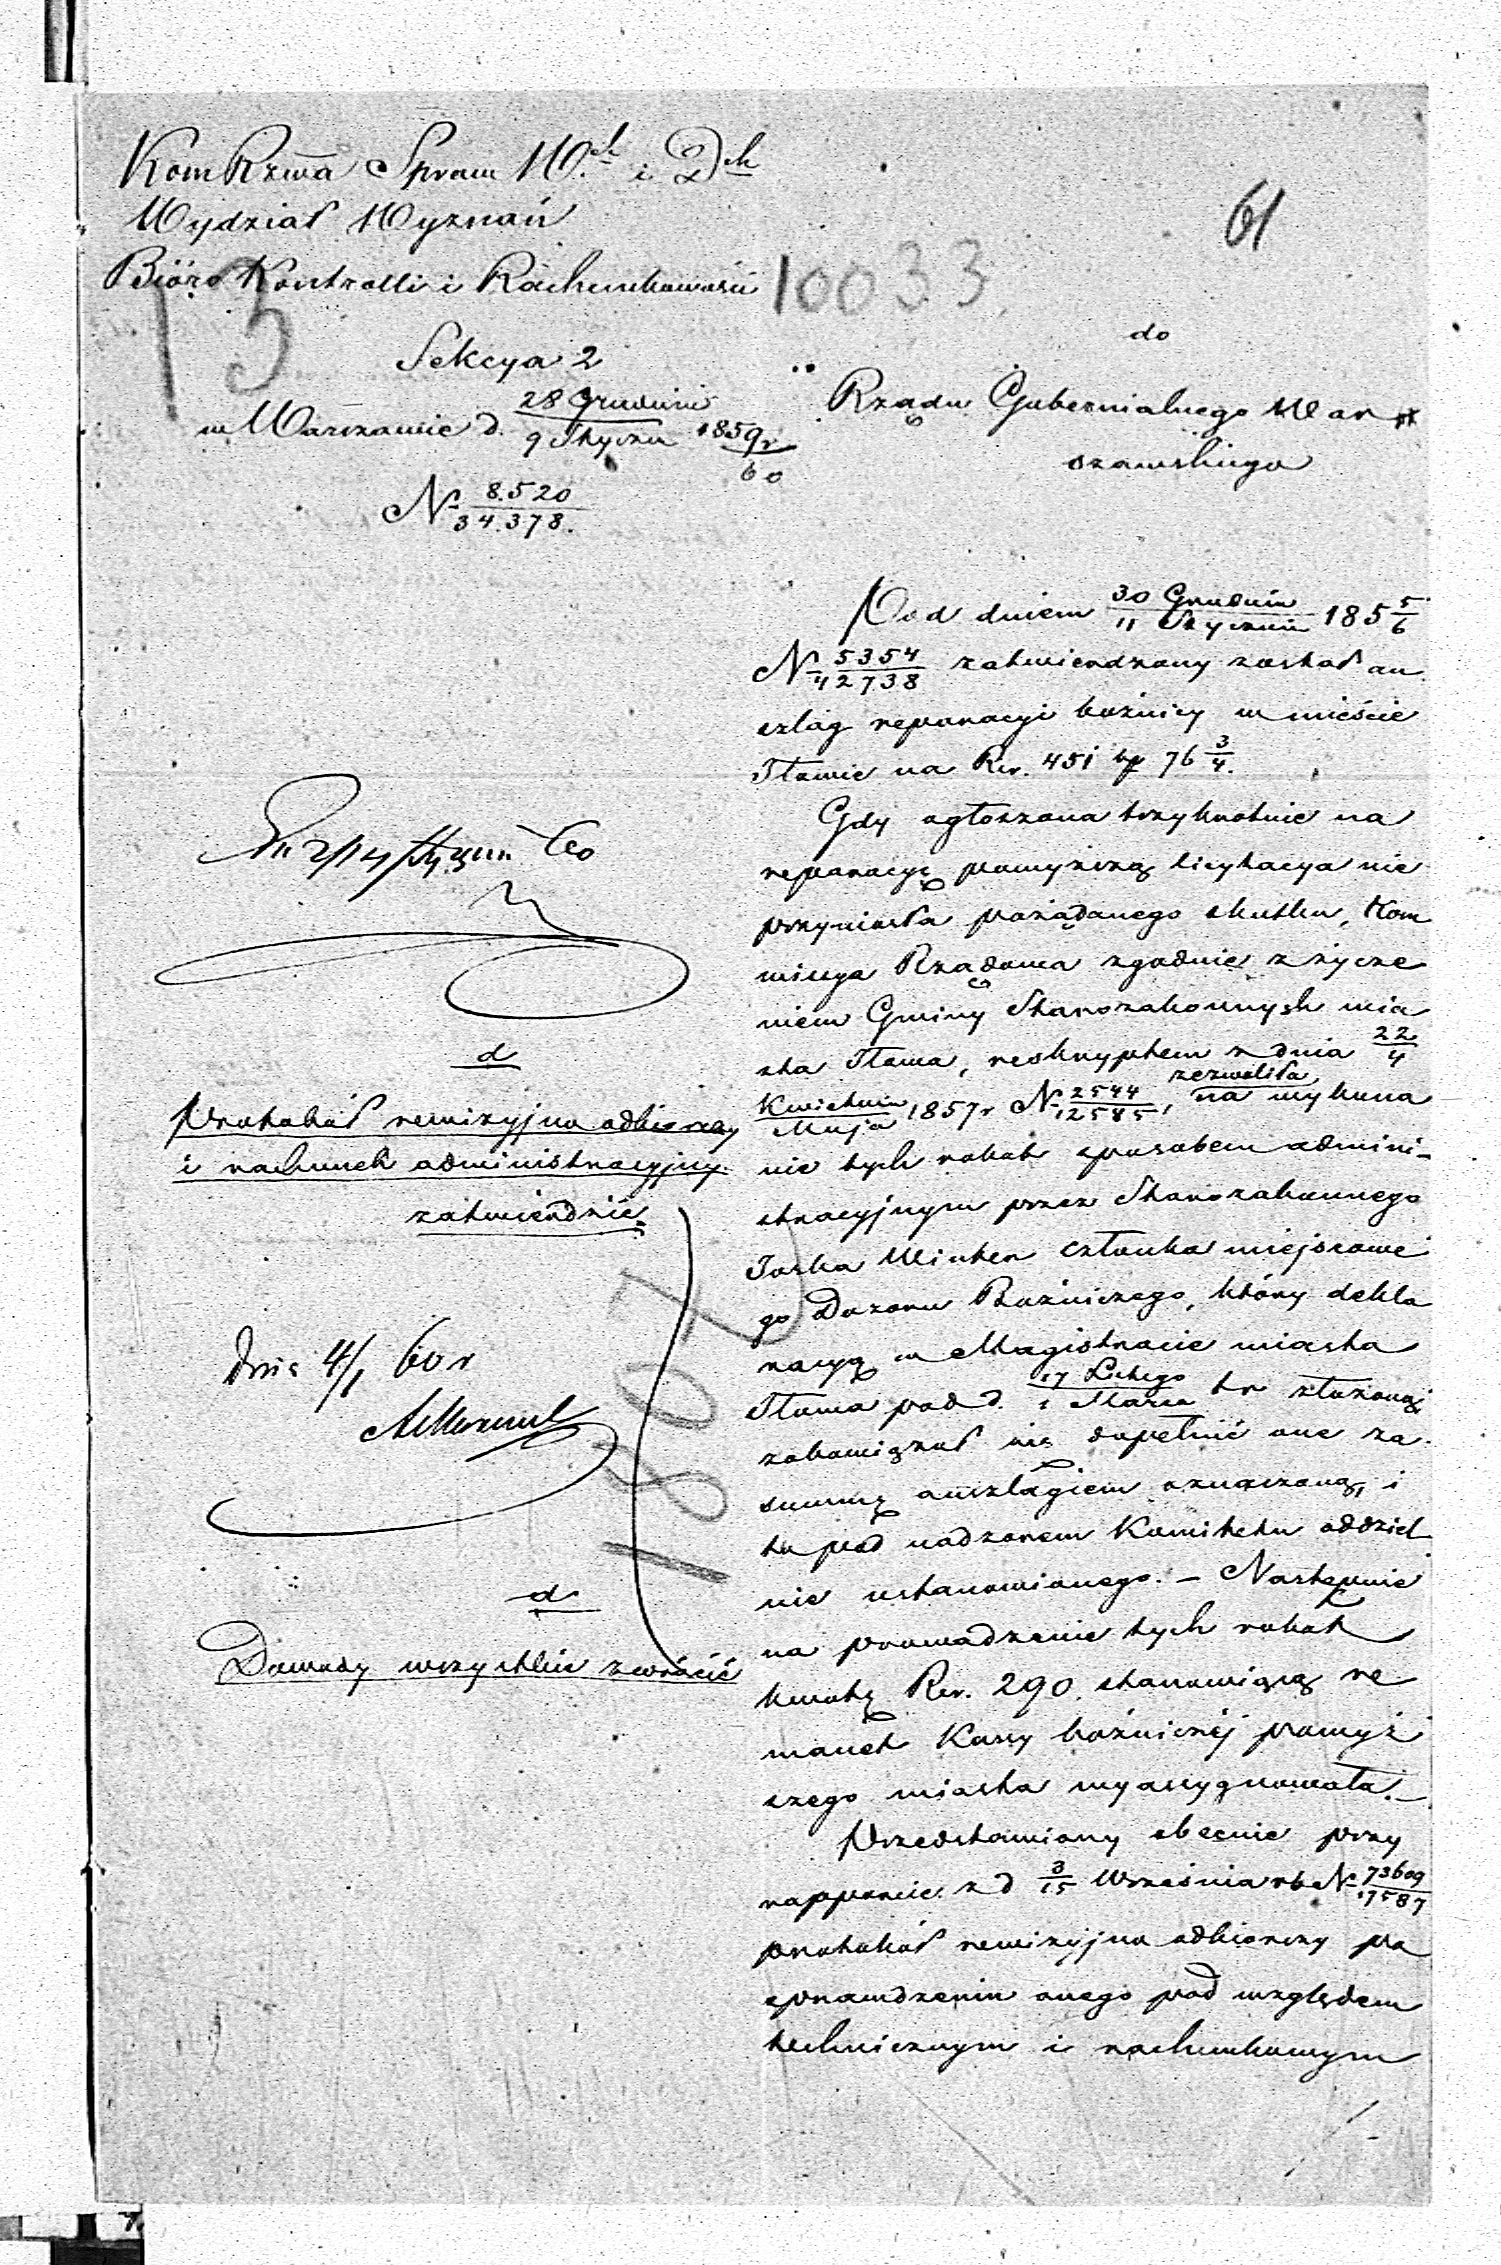 Kom Rzwa Spraw W.ch i D.ch
Wydział Wyznań
Bióro Kontrolli i Rachunkowości
61
13
10033
Sekcya 2
w Warszawie d. 28 Grudnia / 9 Stycznia 1859/60 r
№ 8.520 / 34.378.
do
Rządu Gubernialnego War
szawskiego
Pod dniem 30 Grudnia / 11 Stycznia 185 5/6
№ 5354 / 42738 zatwierdzony został an
szlag reparacyi bóźnicy w mieście
Iławie na Rsr. 451 kp 76 3/4.
Gdy ogłoszona trzykrotnie na
reparacyę powyższą licytacya nie
przyniosła pożądanego skutku, Kom
missya Rządowa zgodnie z życze
niem Gminy Starozakonnych mia
sta Iława, reskryptem z dnia 22/4
Kwietnia / Maja 1857 r № 2544 / 12585, zezwoliła na wykona
nie tych robót sposobem admini-
stracyjnym przez Starozakonnego
Joska Winter członka miejscowe
go Dozoru Bóźniczego, który dekla
racyą w Magistracie miasta
Iława pod d. 17 Lutego / 1 Marca t r złożoną
zobowiązał się dopełnić one za
summę anszlagiem oznaczoną, i
to pod nadzorem Komitetu oddziel
nie ustanowionego. – Następnie
na prowadzenie tych robót
kwotę Rsr. 290. stanowiącą re
manent Kassy bóźniczéj powyż
szego miasta wyassygnowała. –
Przedstawiony obecnie przy
rapporcie z d 3/15 Września rb № 73609 / 17587
protokół rewizyjno odbiorczy po
sprawdzeniu onego pod względem
technicznym i rachunkowym
d
Protokół rewizyjno odbiorczy
i rachunek administracyjny
zatwierdzić
1807
dnia 4/1 60 r
d
Dowody wszystkie zwrócić